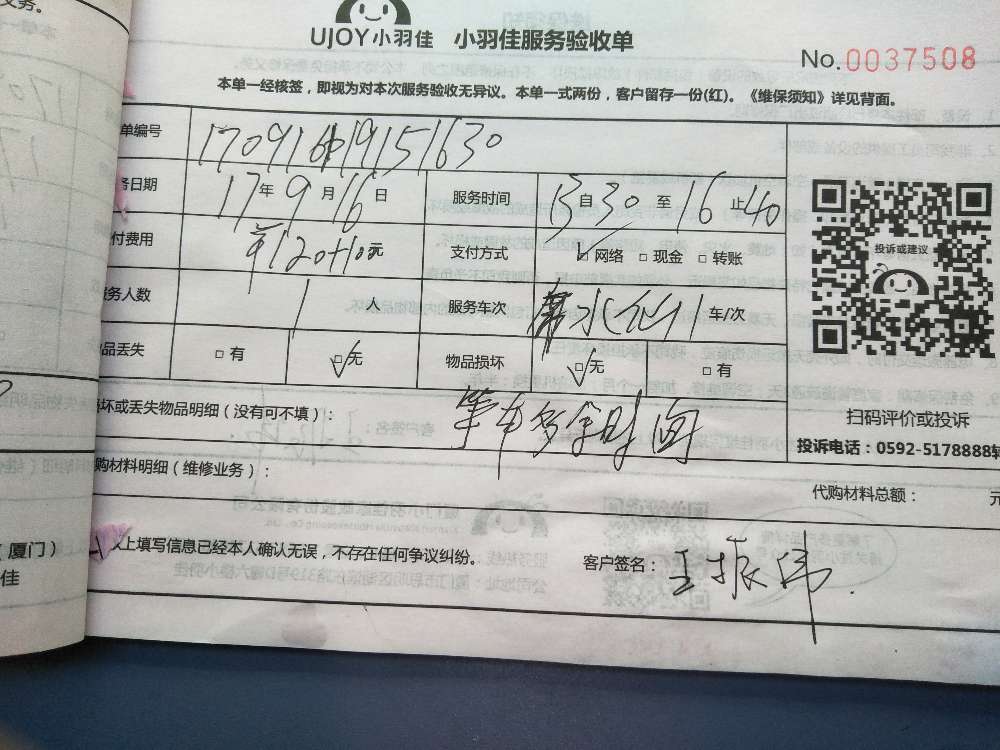 文务。
UJOY小羽佳 小羽佳服务验收单
No.0037508
本单一经核签,即视为对本次服务验收无异议。本单一式两份,客户留存一份(红)。《维保须知》详见背面。
单编号 170916 19151630
务日期 17年9月16日 服务时间 13自30至16止40
付费用 ¥120+10元 支付方式 ☑网络 □现金 □转账
务人数 1人 服务车次 水仙1车/次
品丢失 □有 ☑无 物品损坏 ☑无 □有
投诉或建议
扫码评价或投诉
投诉电话:0592-5178888转
损坏或丢失物品明细(没有可不填):
购材料明细(维修业务):
代购材料总额: 元
以上填写信息已经本人确认无误,不存在任何争议纠纷。
客户签名:王振伟
(厦门)
佳